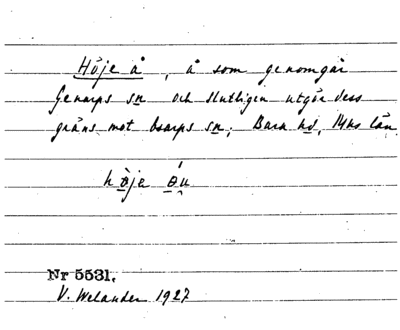 Höje å, å som genomgår
Genarps sn och slutligen utgör dess
gräns mot Esarps sn; Bara hd, Mhs län
höje
Nr 5531.
V. Welander 1927